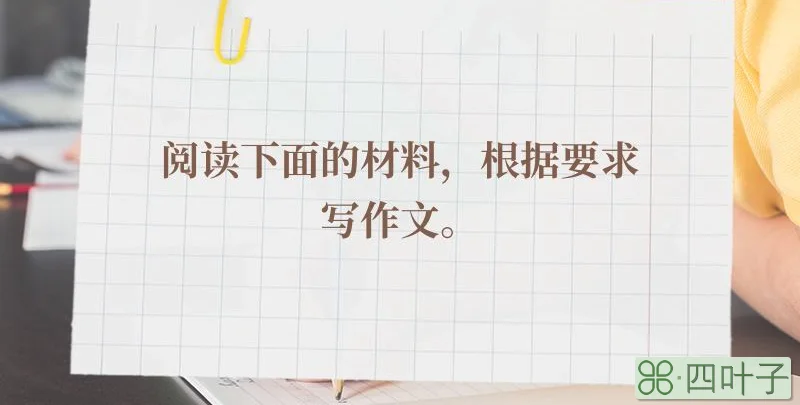 阅读下面的材料，根据要求
写作文。
⌘·四叶子